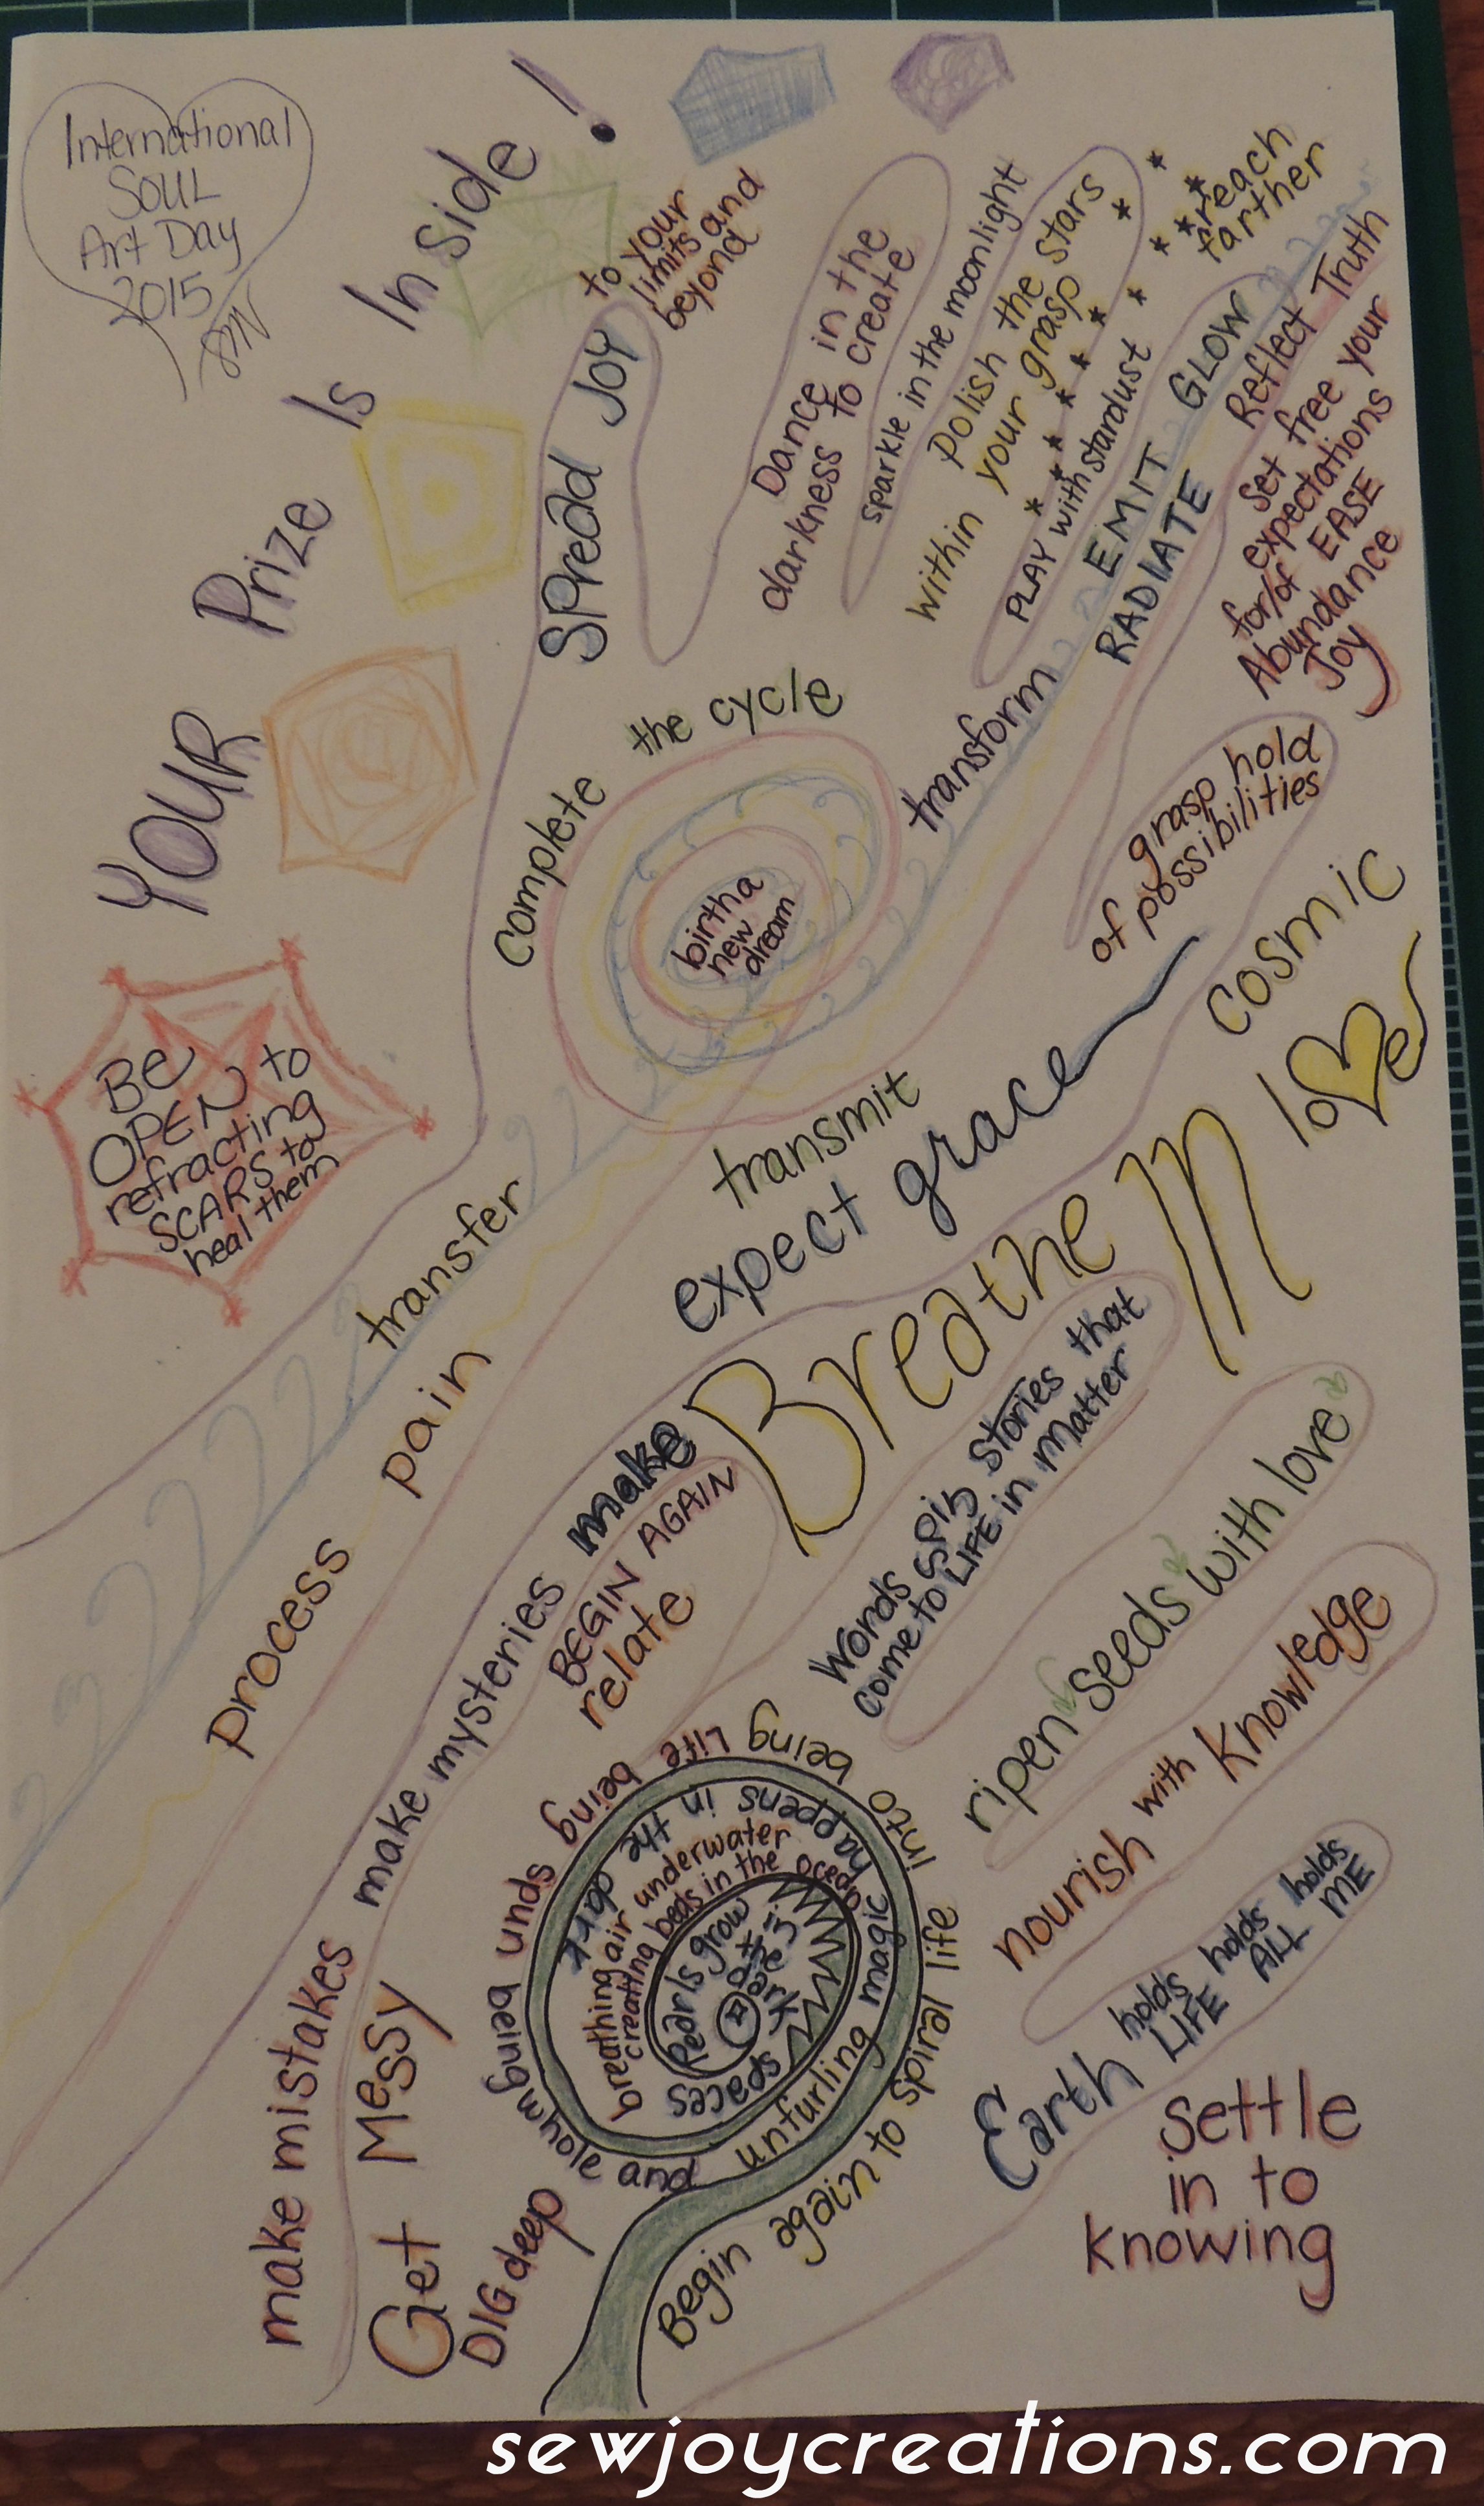 International
SOUL
Art Day
2015
YOUR Prize Is In Side!
BE
OPEN to
refracting
SCARS to
heal them
SPREAD JOY
to your
limits and
beyond
Dance in the
darkness to create
sparkle in the moonlight
Polish the stars
within your grasp
reach
farther
PLAY with stardust
EMIT GLOW
RADIATE
Reflect Truth
set free your
expectations
for/of EASE
Abundance
Joy
grasp hold
of possibilities
complete the cycle
birth a
new
dream
transform
transmit
transfer
process pain
expect grace
cosmic
love
Breathe IN
make mistakes make mysteries make
BEGIN AGAIN
relate
Words spin stories that
come to LIFE in matter
ripen seeds with love
nourish with knowledge
Earth holds holds holds
LIFE ALL ME
settle
in to
knowing
Get Messy
DIG deep
Begin again to spiral life into being life being being spun being whole and
unfurling magic happens in the dark spaces
breathing air underwater
creating beds in the ocean
Pearls grow
in the
dark
sewjoycreations.com